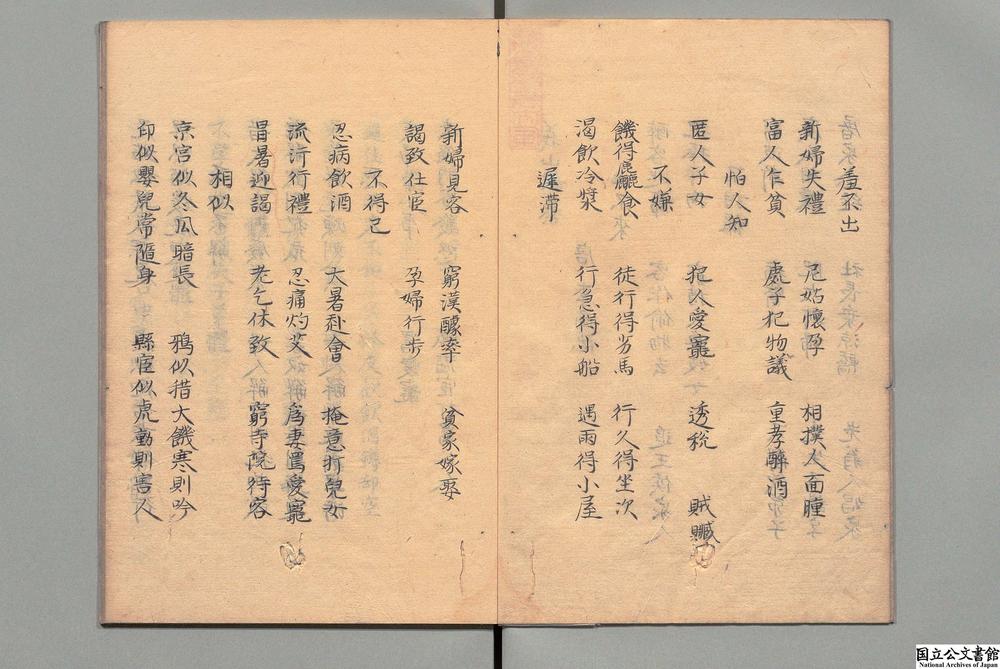 羞不出
新婦失禮　尼姑懷孕　相撲人面腫
富人乍貧　處子犯物議　重孝醉酒
怕人知
匿人子女　犯人愛寵　透稅　賊贓
不嫌
饑得麤食　徒行得劣馬　行久得坐次
渴飲冷漿　行急得小船　遇雨得小屋
遲滯
新婦見客　窮漢醵率　貧家嫁娶
謁致仕官　孕婦行步
不得已
忍病飲酒　大暑赴會　掩意打兒女
流汗行禮　忍痛灼艾　為妻罵愛寵
冒暑迎謁　老乞休致　窮寺院待客
相似
京官似冬瓜暗長　鴉似措大饑寒則吟
印似嬰兒常隨身　縣官似虎動則害人
国立公文書館
National Archives of Japan